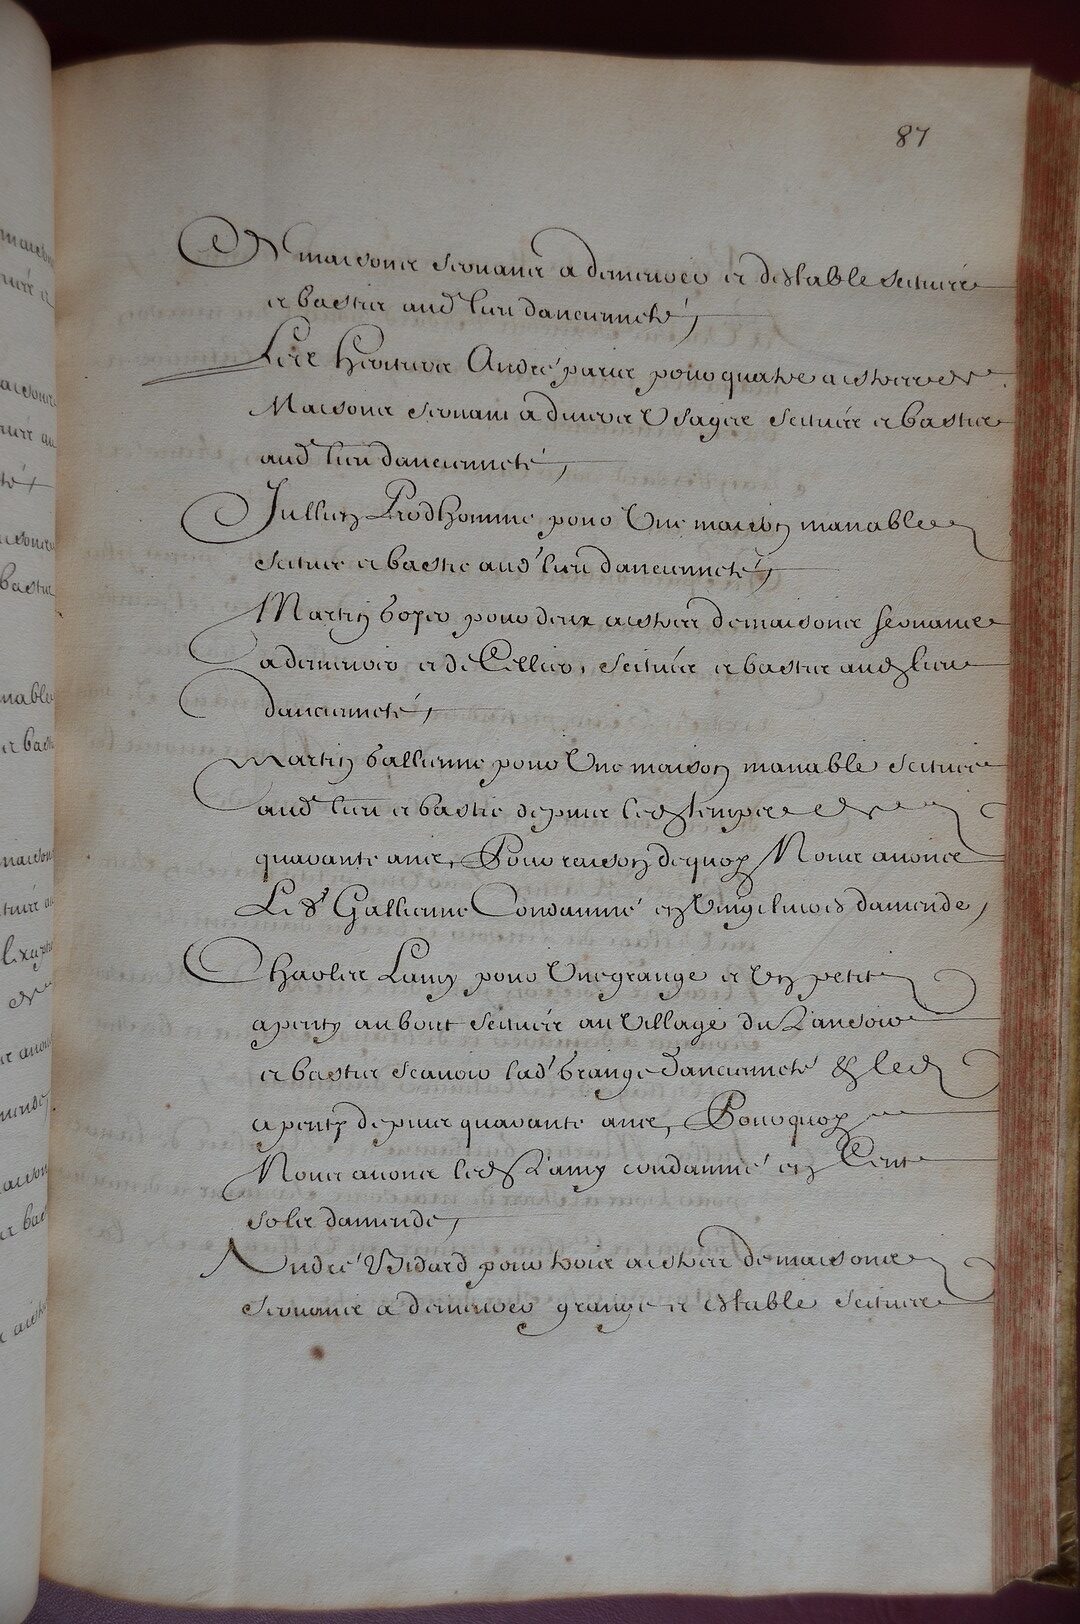 87
De maisons servans a demeurer et destable scituée
et bastie aud lieu dancienneté,
Les Heritiers André paris pour quatre aistres de
Maisons servans a divers Usages scituée et bastie
aud lieu dancienneté,
Jullien Prodhomme pour Une maison manable
scituée et bastie aud lieu dancienneté,
Martin boyer pour deux aistres de maisons servans
a demeurer et de Cellier, scituée et bastie aud lieu
dancienneté,
Martin Gallienne pour Une maison manable scituée
aud lieu et bastie depuis led temps de
quarante ans, Pour raison dequoy Nous avons
Led Gallienne Condamné en Vingt livres damende,
Charles Lamy pour Une grange et Un petit
apenty au bout scituée au Village du
et bastie scavoir lad Grange dancienneté & led
apenty depuis quarante ans, Pourquoy
Nous avons led Lamy condamné en Cent
sols damende,
André Bidard pour trois aistres de maisons
servans a demeurer grange et estable scituée